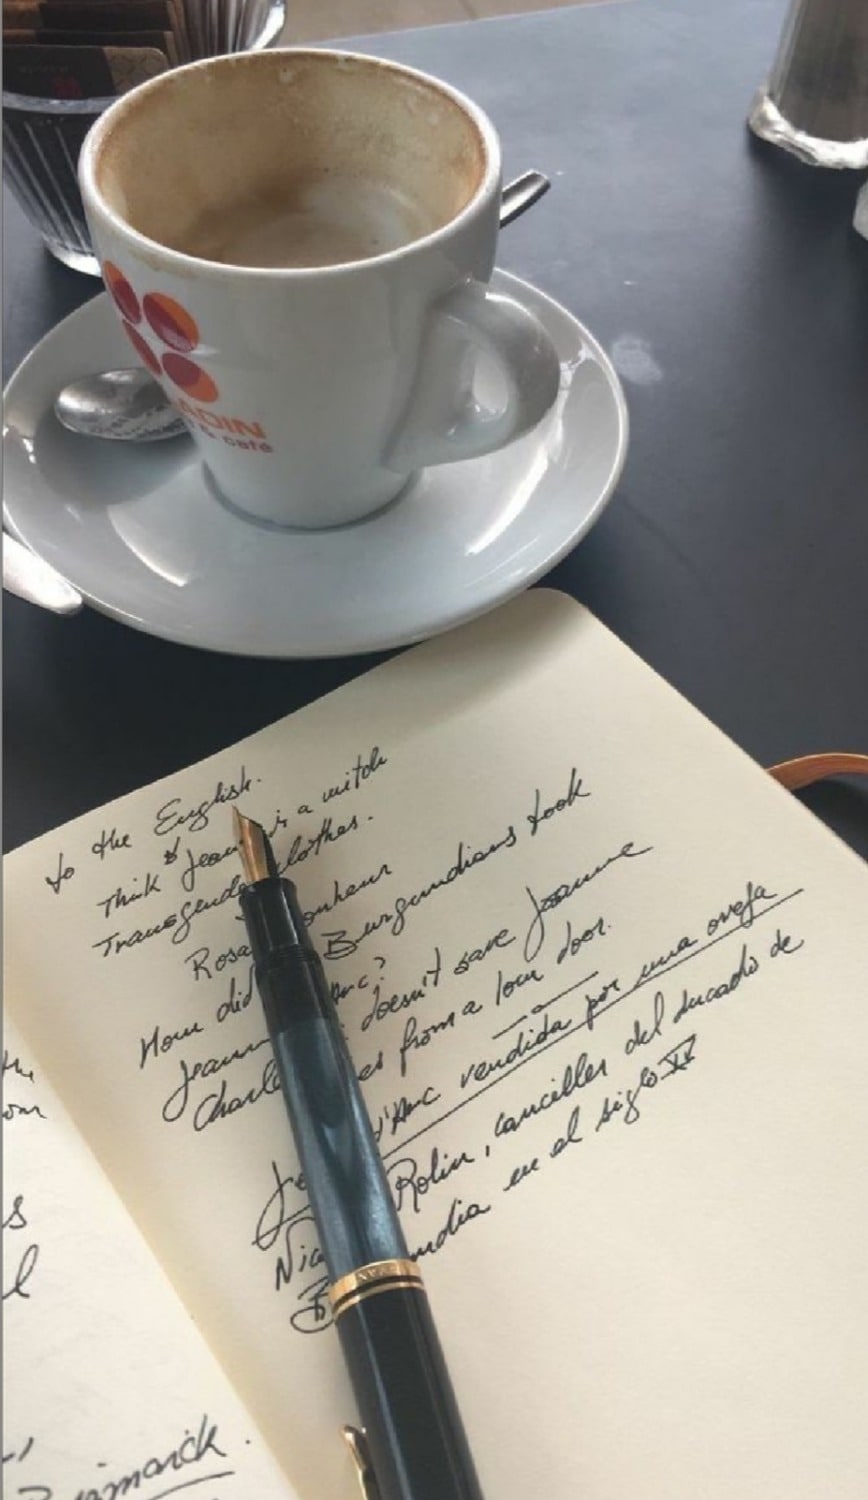 ADIN
café
to the English.
Think Jean is a witch
Transgende clothes.
Rosa onheur
How did Burgundians took
Jeann Arc?
doesn't save Joanne
Charl es from a low door.
d'Arc vendida por una oveja
Nic Rolin, canciller del ducado de
B ndia en el siglo XV
the
om
s
l
ismarck.